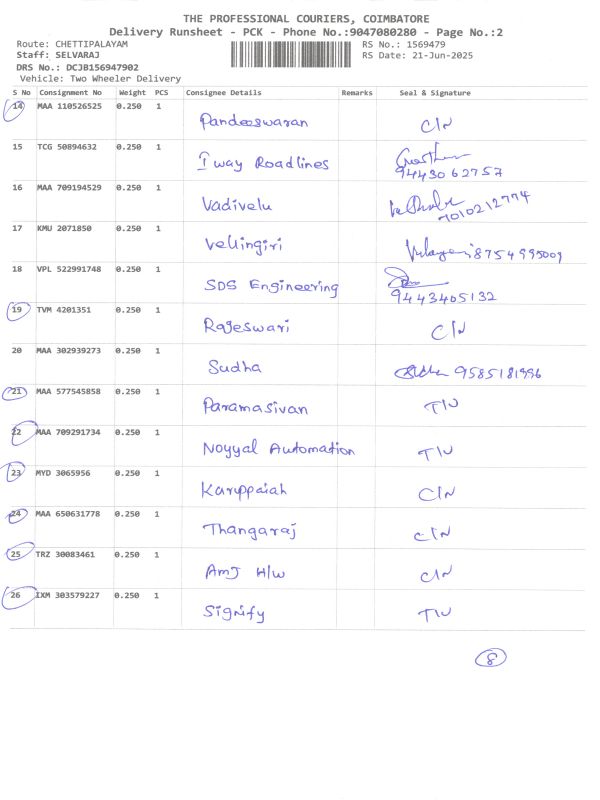 THE PROFESSIONAL COURIERS, COIMBATORE
Delivery Runsheet - PCK - Phone No.:9047080280 - Page No.:2
Route: CHETTIPALAYAM RS No.: 1569479
Staff: SELVARAJ RS Date: 21-Jun-2025
DRS No.: DCJB156947902
Vehicle: Two Wheeler Delivery
S No Consignment No Weight PCS Consignee Details Remarks Seal & Signature
14 MAA 110526525 0.250 1 Pandeeswaran C/N
15 TCG 50894632 0.250 1 I way Roadlines
9443062757
16 MAA 709194529 0.250 1 Vadivelu 7010212774
17 KMU 2071850 0.250 1 Vellingiri 8754995009
18 VPL 522991748 0.250 1 SDS Engineering
9443405132
19 TVM 4201351 0.250 1 Rajeswari C/N
20 MAA 302939273 0.250 1 Sudha Sudha 9585181996
21 MAA 577545858 0.250 1 Paramasivan T/U
22 MAA 709291734 0.250 1 Noyyal Automation T/U
23 MYD 3065956 0.250 1 Karuppaiah C/N
24 MAA 650631778 0.250 1 Thangaraj C/N
25 TRZ 30083461 0.250 1 AMJ H/W C/N
26 IXM 303579227 0.250 1 Signify T/U
8